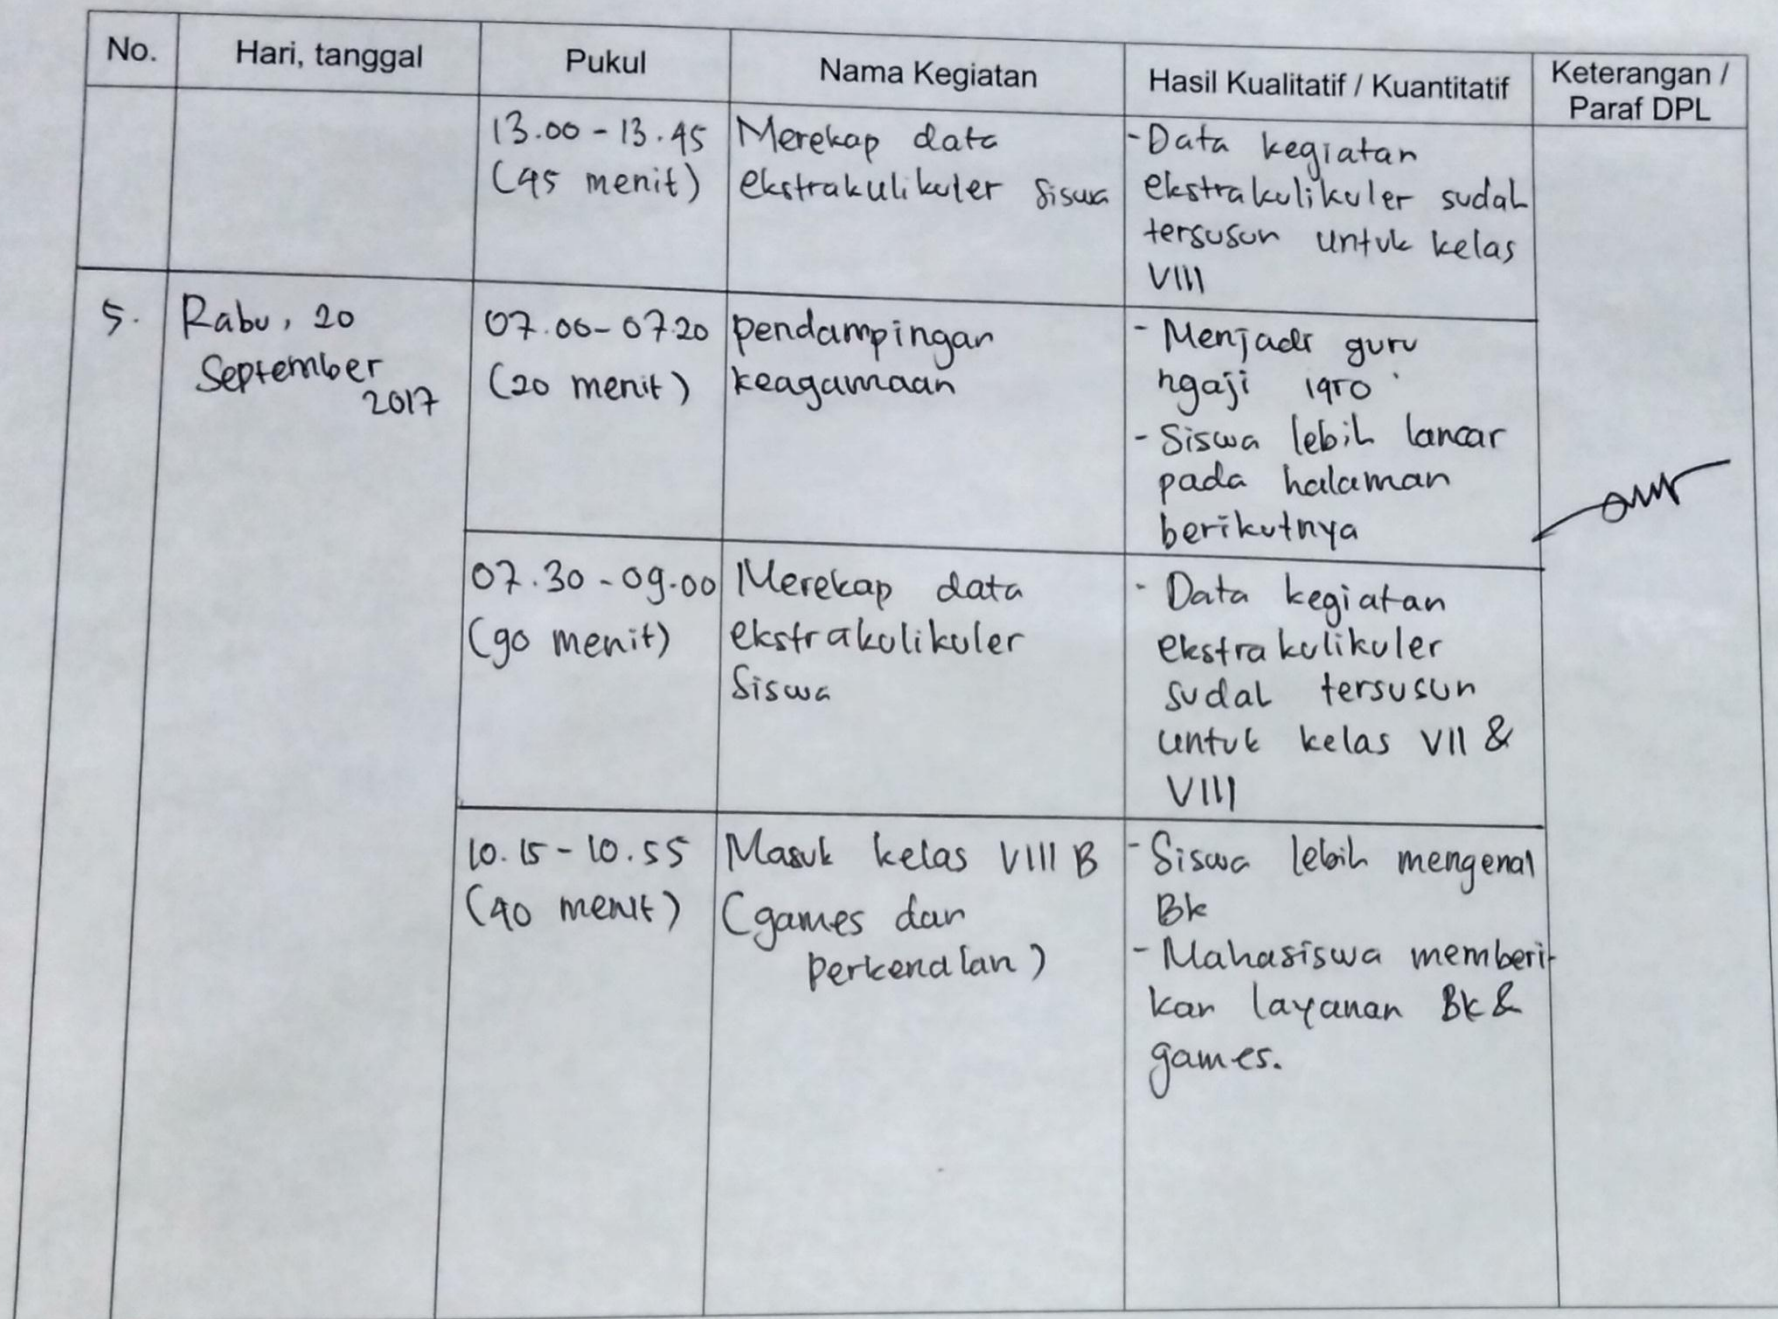 No. Hari, tanggal Pukul Nama Kegiatan Hasil Kualitatif / Kuantitatif Keterangan / Paraf DPL
13.00 - 13.45
(45 menit)
Merekap data
ekstrakulikuler siswa
- Data kegiatan
ekstrakulikuler sudah
tersusun untuk kelas
VIII
5. Rabu, 20
September
2017
07.00 - 07.20
(20 menit)
pendampingan
keagamaan
- Menjadi guru
ngaji iqro'
- Siswa lebih lancar
pada halaman
berikutnya
07.30 - 09.00
(90 menit)
Merekap data
ekstrakulikuler
Siswa
- Data kegiatan
ekstrakulikuler
sudah tersusun
untuk kelas VII &
VIII
10.15 - 10.55
(40 menit)
Masuk kelas VIII B
(games dan
perkenalan)
- Siswa lebih mengenal
BK
- Mahasiswa memberi-
kan layanan BK &
games.